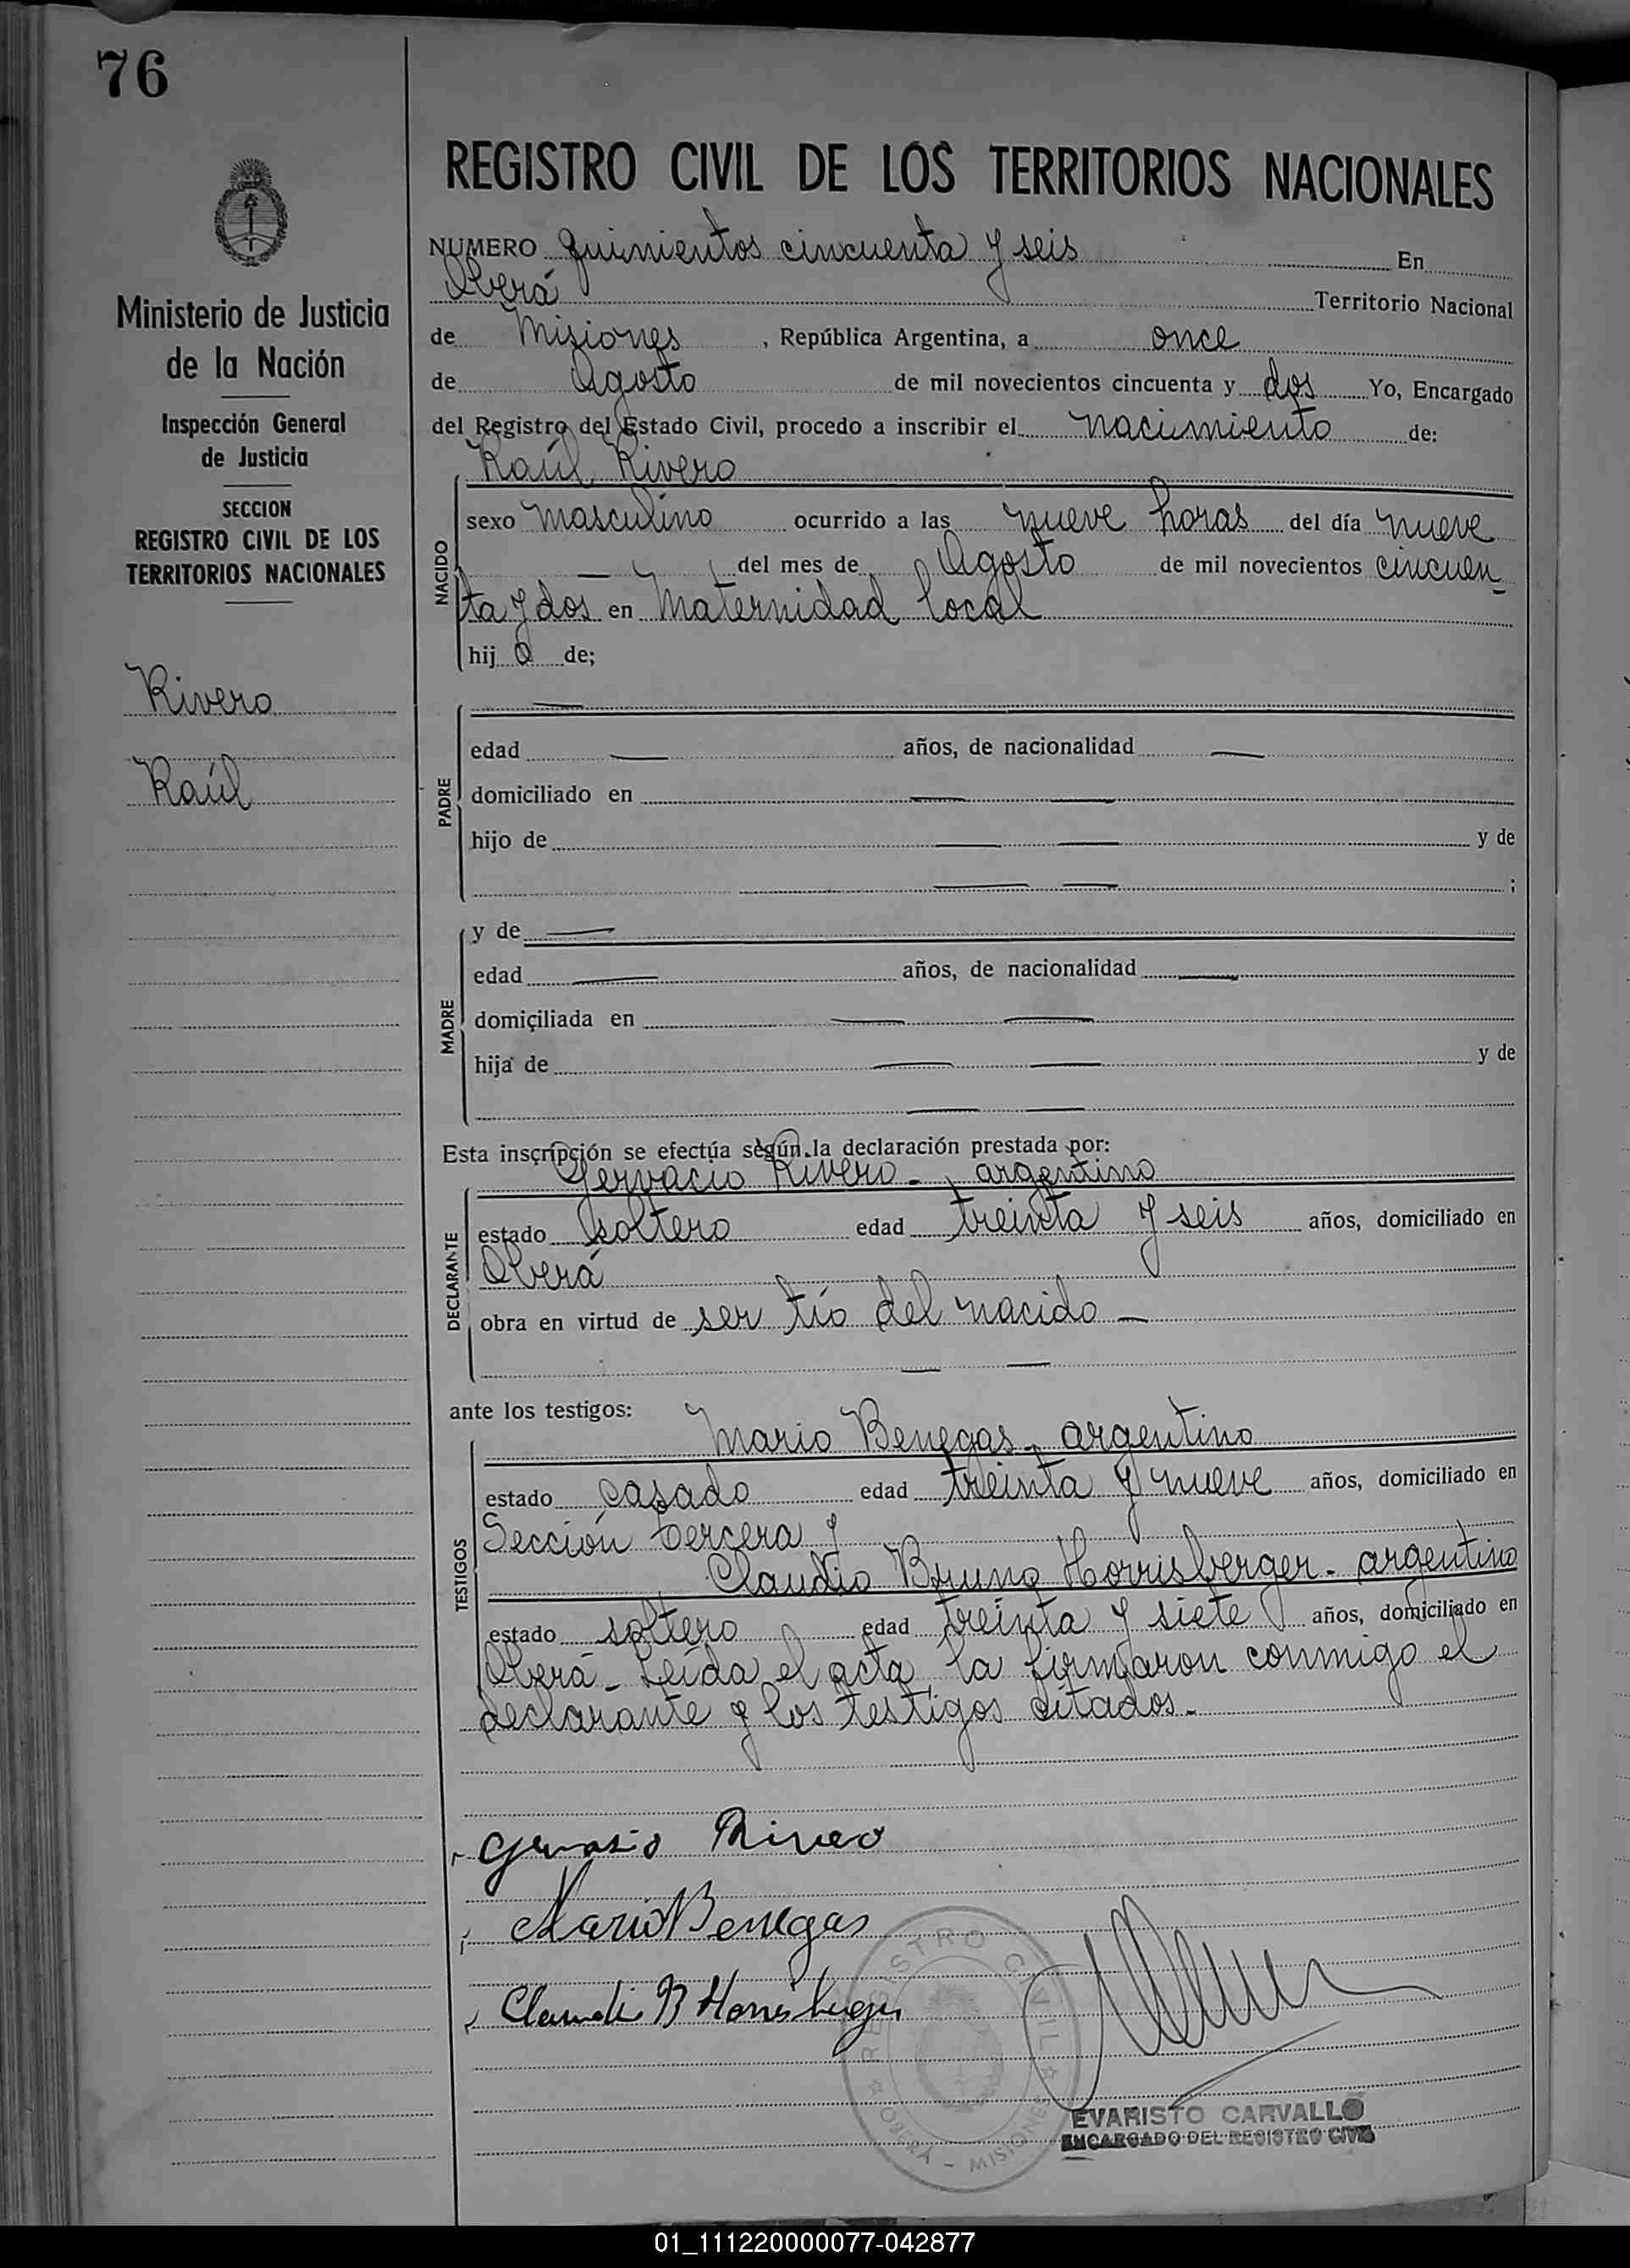 76
Ministerio de Justicia
de la Nación
Inspección General
de Justicia
SECCION
REGISTRO CIVIL DE LOS
TERRITORIOS NACIONALES
Rivero
Raúl
REGISTRO CIVIL DE LOS TERRITORIOS NACIONALES
NUMERO quinientos cincuenta y seis En
Oberá Territorio Nacional
de Misiones, República Argentina, a once
de Agosto de mil novecientos cincuenta y dos Yo, Encargado
del Registro del Estado Civil, procedo a inscribir el nacimiento de:
Raúl Rivero
NACIDO
sexo masculino ocurrido a las nueve horas del día nueve
— del mes de Agosto de mil novecientos cincuen-
ta y dos en Maternidad local
hijo de;
—
PADRE
edad — años, de nacionalidad —
domiciliado en — —
hijo de — — y de
— — ;
MADRE
y de —
edad — años, de nacionalidad —
domiciliada en — —
hija de — — y de
— —
Esta inscripción se efectúa según la declaración prestada por:
Gervacio Rivero - argentino
DECLARANTE
estado soltero edad treinta y seis años, domiciliado en
Oberá
obra en virtud de ser tío del nacido —
— —
ante los testigos:
Mario Benegas - argentino
TESTIGOS
estado casado edad treinta y nueve años, domiciliado en
Sección tercera y
Claudio Bruno Horrisberger - argentino
estado soltero edad treinta y siete años, domiciliado en
Oberá - Leída el acta, la firmaron conmigo el
declarante y los testigos citados -
Gervasio Rivero
Mario Benegas
Claudi B Horrisberger
REGISTRO CIVIL
OBERÁ - MISIONES
EVARISTO CARVALLO
ENCARGADO DEL REGISTRO CIVIL
01_111220000077-042877